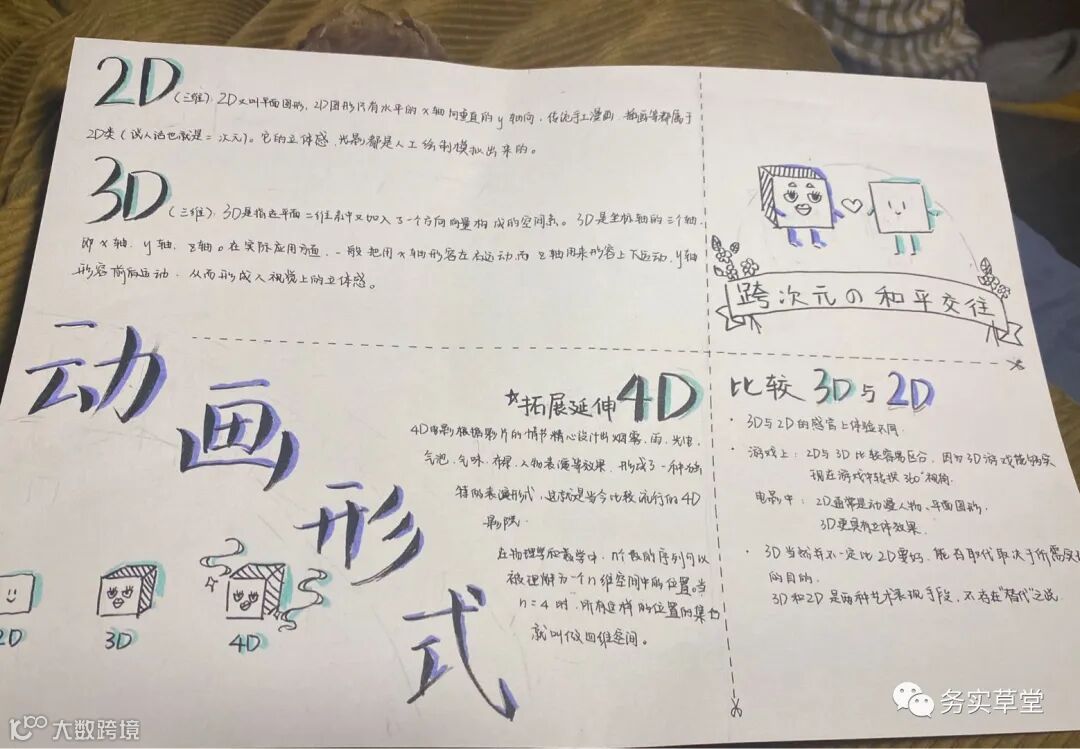 2D（三维）：2D又叫平面图形，2D图形只有水平的x轴向垂直的y轴向，传统手工漫画、插画等都属于
2D类（说人话也就是二次元）。它的立体感，光影都是人工绘制模拟出来的。
3D（三维）：3D是指在平面二维系中又加入了一个方向向量构成的空间系。3D是坐标轴的三个轴，
即x轴、y轴、z轴。在实际应用方面，一般把用x轴形容左右运动，而z轴用来形容上下运动，y轴
形容前后运动，从而形成人视觉上的立体感。
跨次元の和平交往
动画形式
2D
3D
4D
☆拓展延伸4D
4D电影根据影片的情节精心设计出烟雾、雨、光电、
气泡、气味、布景、人物表演等效果，形成了一种独
特的表演形式，这就是当今比较流行的4D
影院.
在物理学和数学中，n个数的序列可以
被理解为一个n维空间中的位置。当
n=4时，所有这样的位置的集合
就叫做四维空间。
比较3D与2D
· 3D与2D的感官上体验不同.
· 游戏上：2D与3D比较容易区分，因为3D游戏能够实
现在游戏中转换360°视角.
电影中：2D通常是动漫人物、平面图形.
3D更具有立体效果.
· 3D当然并不一定比2D要好，能否取代取决于所需反
的目的.
3D和2D是两种艺术表现手段，不存在"替代"之说.
务实草堂
大数跨境